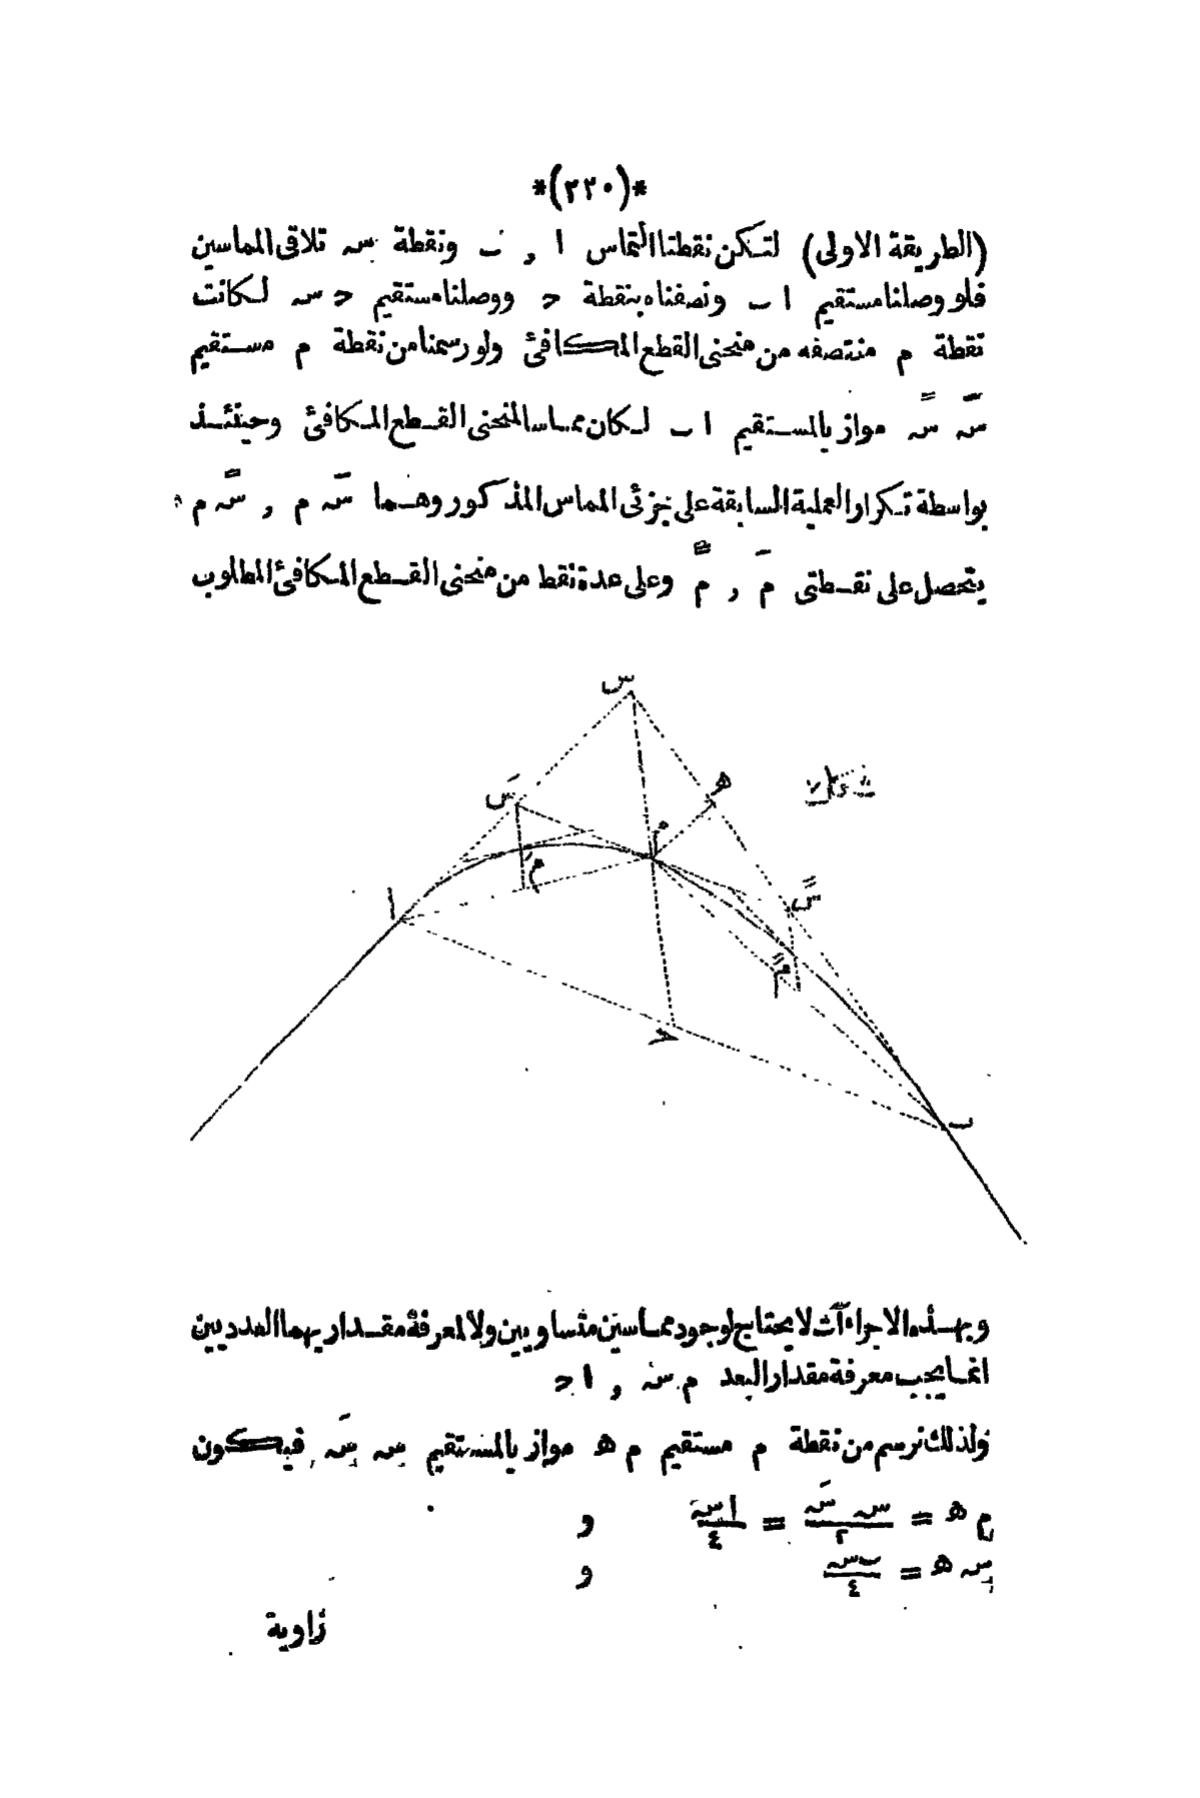 *(٢٢٠)*
(الطريقة الاولى) لتكن نقطتا التماس ا , ب ونقطة س تلاقى المماسين
فلو وصلنا مستقيم ا ب ونصفناه بنقطة د ووصلنا مستقيم د س لكانت
نقطة م منتصفه من منحنى القطع المكافئ ولو رسمنا من نقطة م مستقيم
سَ سً مواز بالمستقيم ا ب لكان مماسا لمنحنى القطع المكافئ وحينئذ
بواسطة تكرار العملية السابقة على جزئى المماس المذكور وهما سَ م , سً م
يتحصل على نقطتى مَ , مً وعلى عدة نقط من منحنى القطع المكافئ المطلوب
س
سَ
ه
م
ا
مَ
سً
مً
د
ب
وبهذه الاجراآت لا يحتاج لوجود مماسين متساويين ولا لمعرفة مقداريهما العدديين
انما يجب معرفة مقدار البعد م س , ا د
ولذلك نرسم من نقطة م مستقيم م ه مواز بالمستقيم س سَ فيكون
م ه = س سَ / ٢ = ا س / ٤ و
س ه = ب س / ٤ و
زاوية